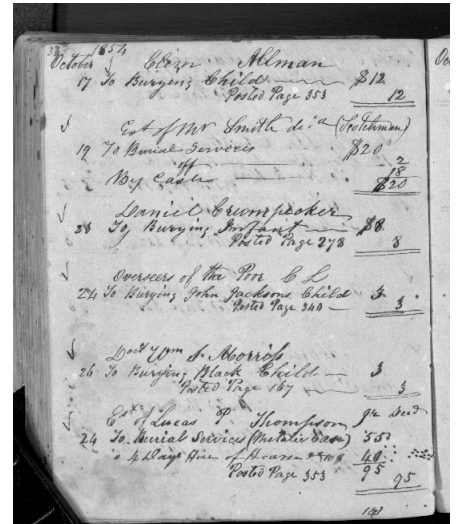 1854
October Allman
17 To Burying Child $12
Posted Page 353 12
Est of Mr Smith dec'd (Scotchman)
19 To Burial Services $20
off 2
By Cash 18
$20
Daniel Crumpecker
23 To Burying Infant $8
Posted Page 278 8
Overseers of the Poor C L
24 To Burying John Jacksons Child 3
Posted Page 340 3
Doct Wm S. Morriss
26 To Burying Black Child 3
Posted Page 167 3
Est of Lucas P Thompson Jr Decd
24 To Burial Services (Metalic Case) 55
4 Days Hire of Hearse 40
Posted Page 353 95 95